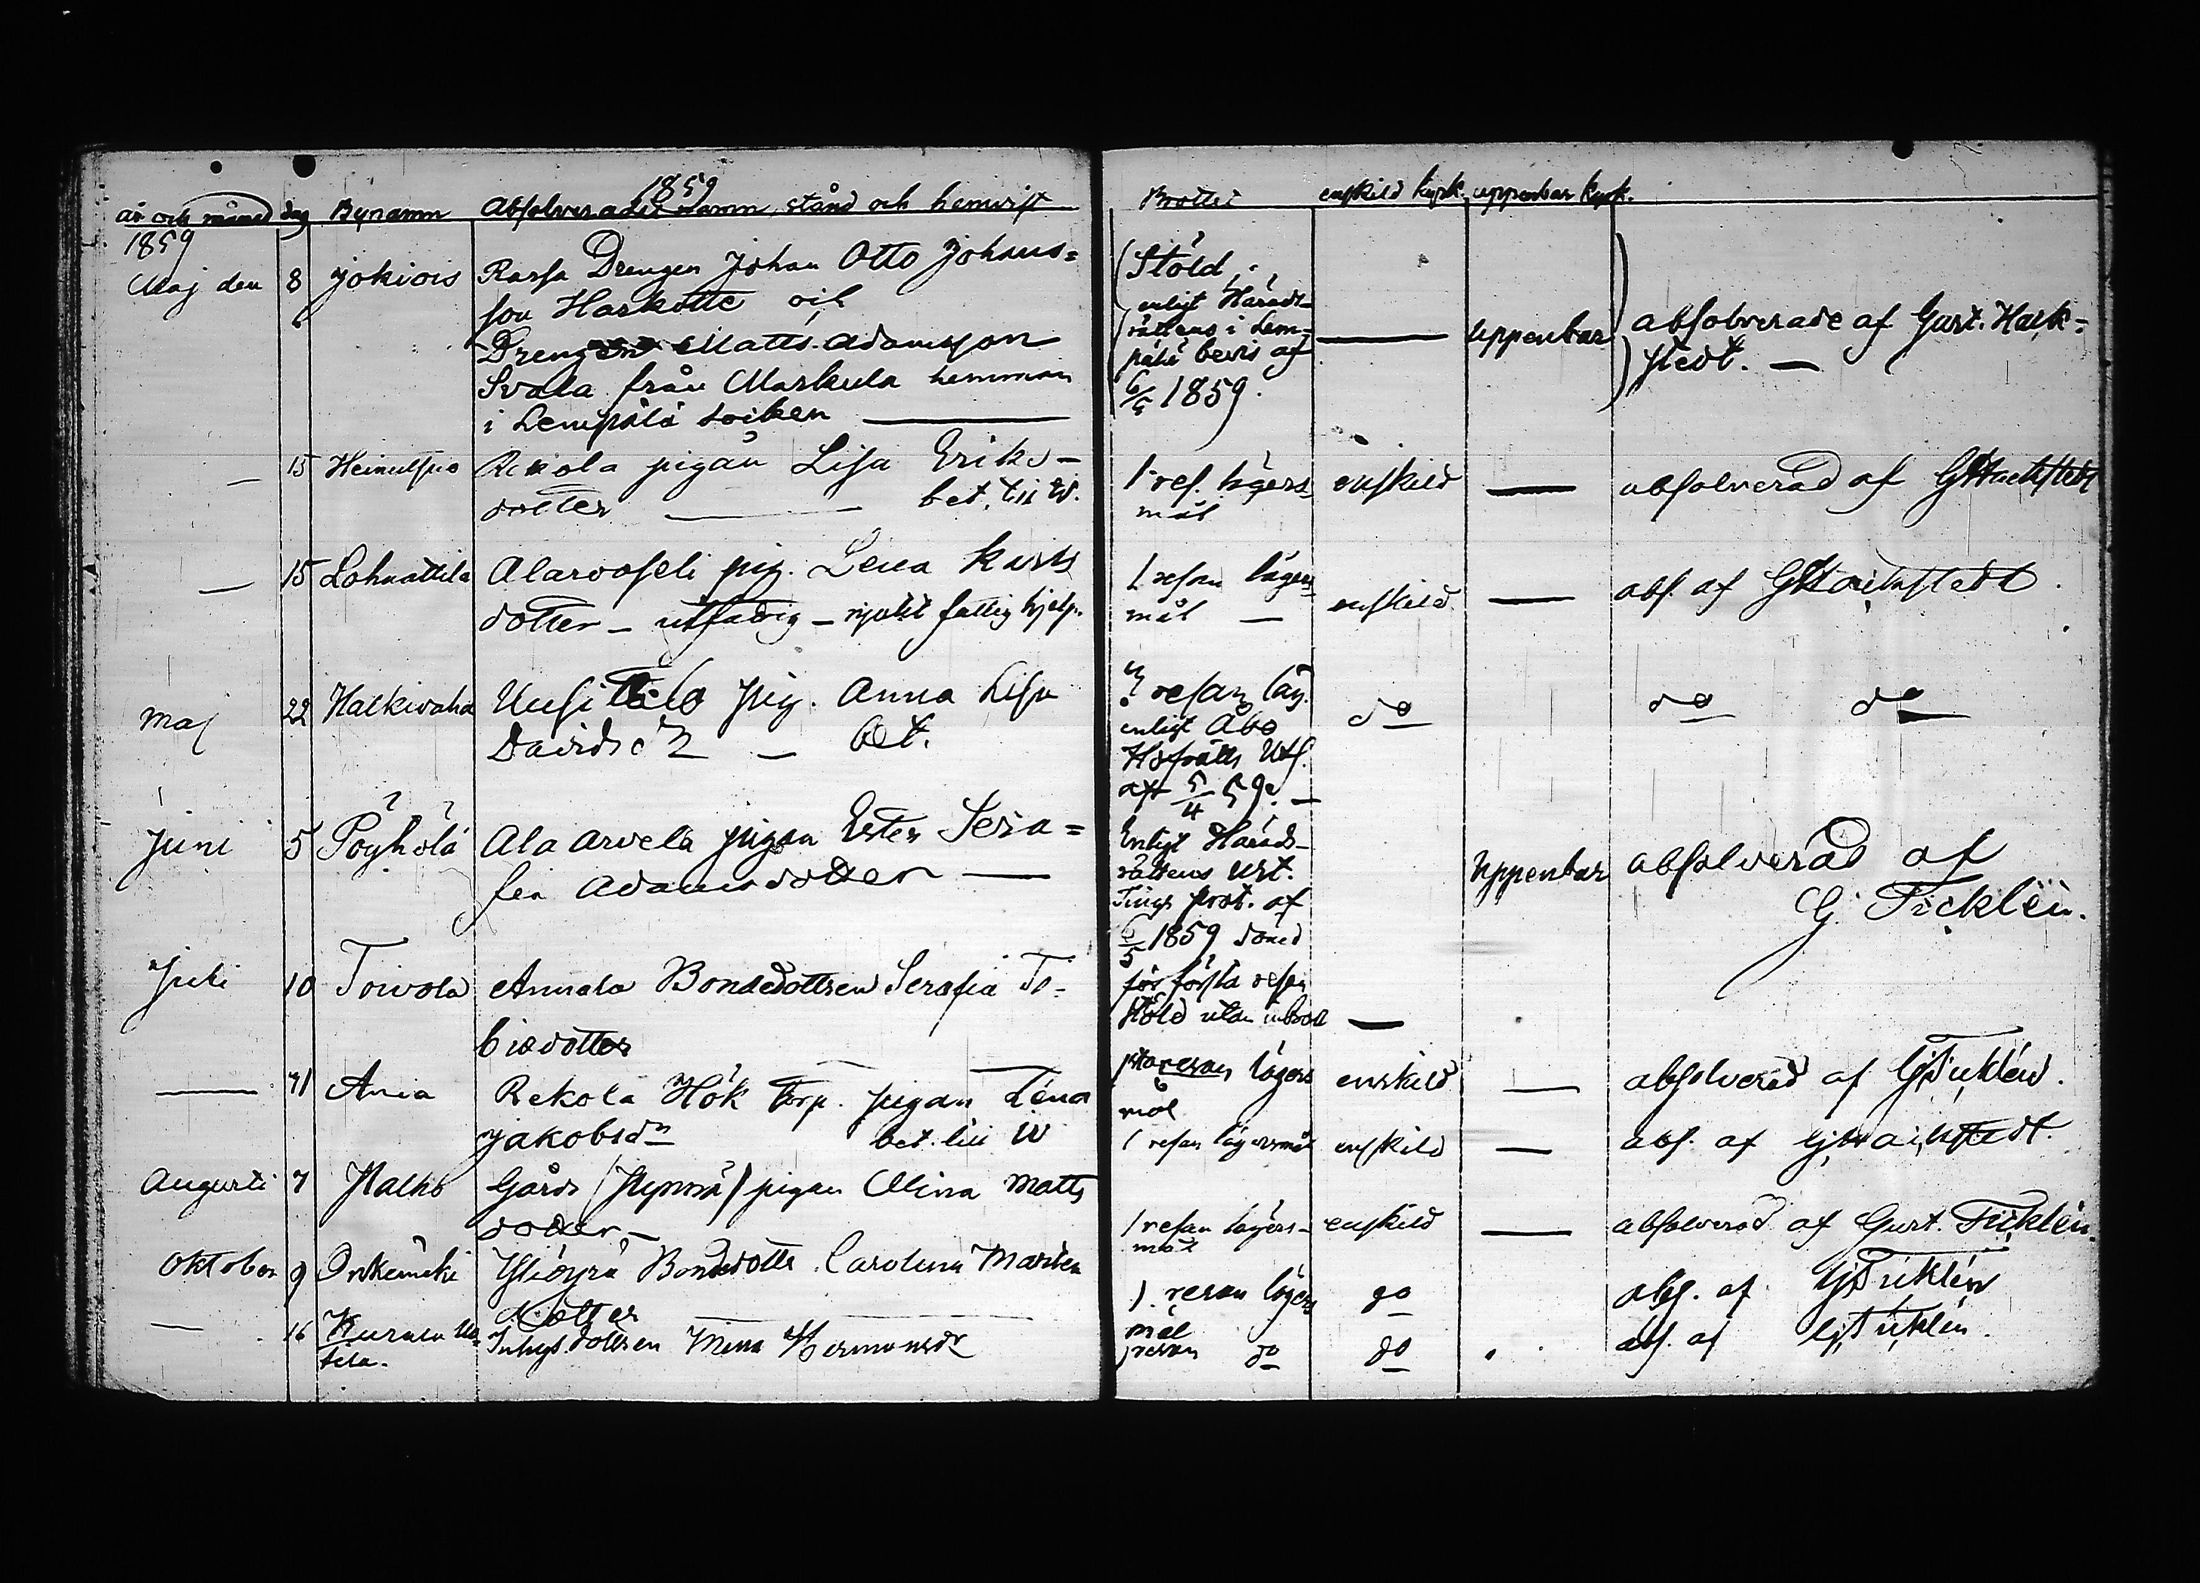 1859
år och månad dag Bynamn Absolverades namn, stånd och hemvist Brottet enskild kyrk. uppenbar kyrk.
1859
Maj den 8 Jokiois Drengen Johan Otto Johans=
son Harkotte och
Dreng Matts Adamsson
Svala från Markula hemman
i Lempälä socken
Stöld,
enligt Härads-
rättens i Lem-
pälä bevis af
6/5 1859.
— uppenbar absolverade af Gust. Hack=
stedt. —
— 15 Rekola pigan Lisa Eriks-
dotter — bet. till W.
1 res. lägers
mål
enskild — absolverad af GHackstedt
— 15 Lohnattila Alarvoseli pig. Lena
dotter — utfattig — fattighjelp.
1 resan lägers
mål —
enskild — abs. af GHackstedt.
Maj 22 Halkivaha Uusitalo pig. Anna Lisa
Davidsdr — bet.
resan läg.
enligt Åbo
Hofrätts Utsl.
5/4 59. —
do do do
Juni 5 Pöyhölä Ala Arvela pigan Ester Sera=
fia Adamsdotter —
Enligt Härads-
rättens Urt.
Tings prot. af
6/5 1859 dömd
för första resan
stöld utan inbrott —
uppenbar absolverad af
G. Ticklén.
Juli 10 Toivola Annala Bondedottren Serafia To-
biedotter
resan lägers
mål
enskild — absolverad af GTicklén.
— 31 Rekola Hök torp. pigan Lena
Jakobsdr bet. till W
1 resan lägersmål enskild — abs. af GHackstedt.
Augusti 7 Halko Gårds (Hynnä) pigan Mina Matts
dotter —
1 resan lägers-
mål
enskild — absolverad af Gust. Ticklén.
Oktober 9 Onkemäki Bondedottr. Carolina
dotter
1. resan lägers
mål
do abs. af GTicklén
— 16 Inhys dottren Mina Hermansdr
resan do do abs. af G Ticklén.